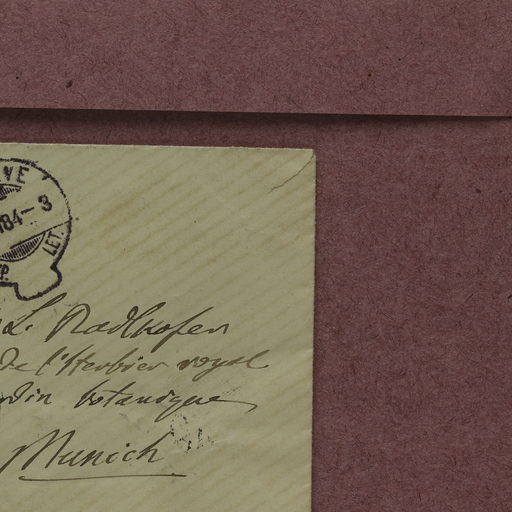 VE
84-3
LET.
L. Radlkofer
de l'Herbier royal
din botanique
Munich